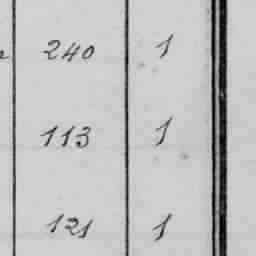 240 1
113 1
121 1